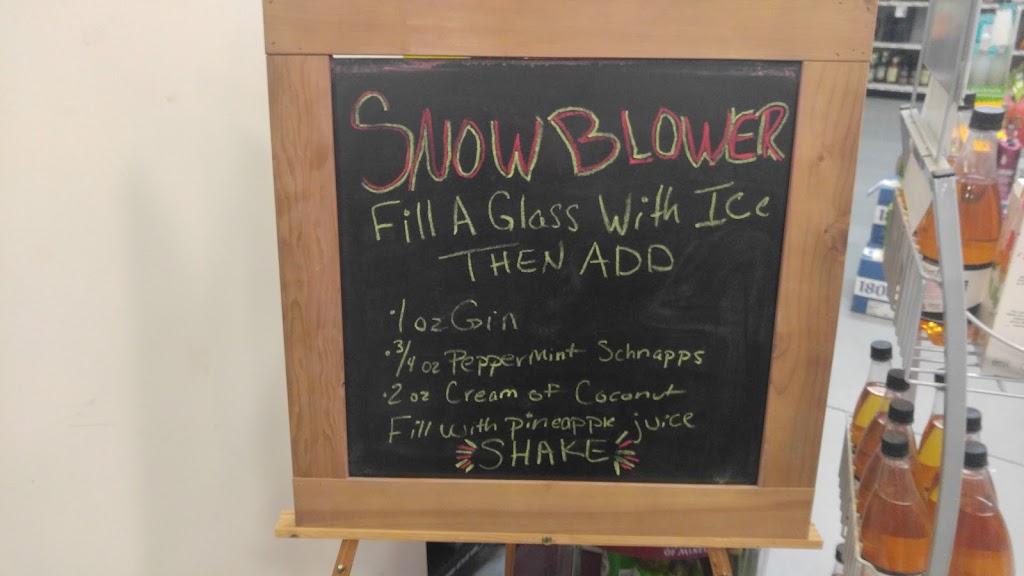 SNOW BLOWER
Fill A Glass With Ice
THEN ADD
·1 oz Gin
·3/4 oz PepperMint Schnapps
·2 oz Cream of Coconut
Fill with pineapple juice
SHAKE
1800